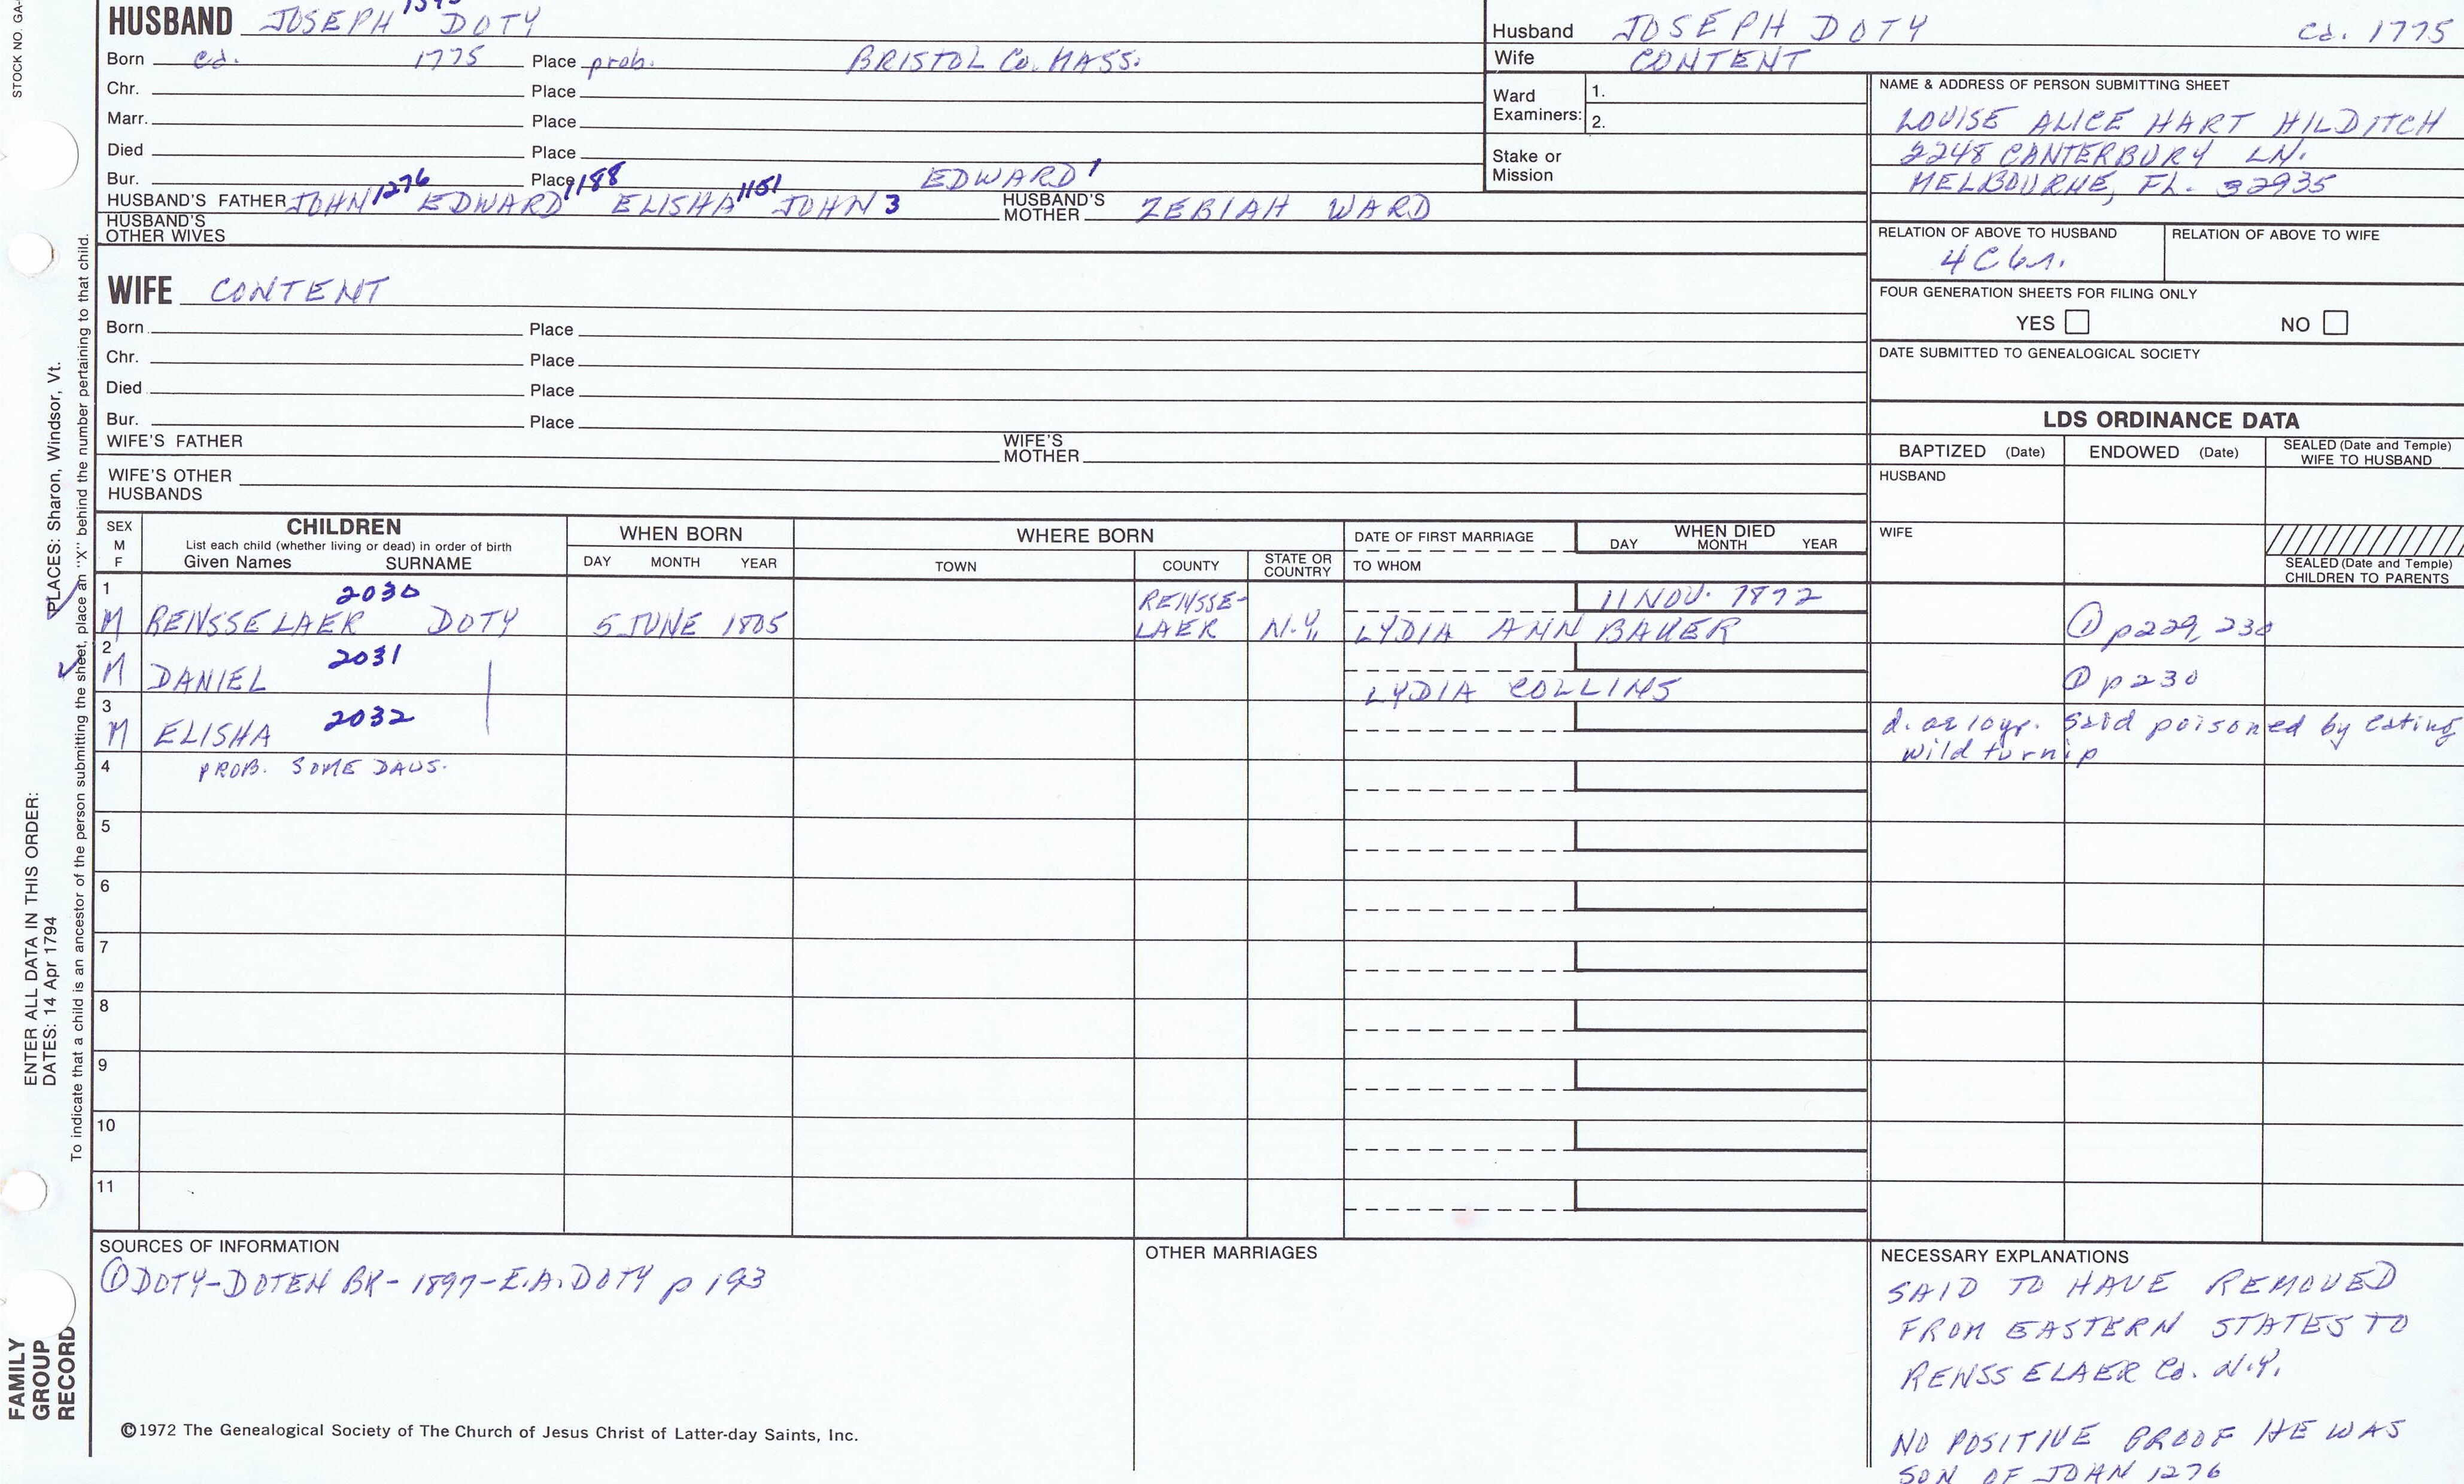 STOCK NO. GA-
HUSBAND JOSEPH DOTY
Born ca. 1775 Place prob. BRISTOL Co. MASS.
Chr. Place
Marr. Place
Died Place
Bur. Place EDWARD 1
HUSBAND'S FATHER JOHN 1276 EDWARD 1188 ELISHA 1151 JOHN 3 HUSBAND'S MOTHER ZEBIAH WARD
HUSBAND'S OTHER WIVES
WIFE CONTENT
Born Place
Chr. Place
Died Place
Bur. Place
WIFE'S FATHER WIFE'S MOTHER
WIFE'S OTHER HUSBANDS
Husband JOSEPH DOTY ca. 1775
Wife CONTENT
Ward Examiners: 1.
2.
Stake or Mission
NAME & ADDRESS OF PERSON SUBMITTING SHEET
LOUISE ALICE HART HILDITCH
2248 CANTERBURY LN.
MELBOURNE, FL. 32935
RELATION OF ABOVE TO HUSBAND RELATION OF ABOVE TO WIFE
4C6r.
FOUR GENERATION SHEETS FOR FILING ONLY
YES NO
DATE SUBMITTED TO GENEALOGICAL SOCIETY
LDS ORDINANCE DATA
BAPTIZED (Date) ENDOWED (Date) SEALED (Date and Temple) WIFE TO HUSBAND
HUSBAND
WIFE
SEALED (Date and Temple) CHILDREN TO PARENTS
SEX M F
CHILDREN
List each child (whether living or dead) in order of birth
Given Names SURNAME
WHEN BORN
DAY MONTH YEAR
WHERE BORN
TOWN COUNTY STATE OR COUNTRY
DATE OF FIRST MARRIAGE
TO WHOM
WHEN DIED
DAY MONTH YEAR
1 2030 RENSSE- 11 NOV. 1872
M RENSSELAER DOTY 5 JUNE 1805 LAER N.Y. LYDIA ANN BAKER ① p229, 230
2 2031
M DANIEL LYDIA COLLINS ① p230
3 2032
M ELISHA d. as 10yr. Said poisoned by eating
wild turnip
4 PROB. SOME DAUS.
5
6
7
8
9
10
11
SOURCES OF INFORMATION
① DOTY-DOTEN BK- 1897-E.A. DOTY p 193
OTHER MARRIAGES
NECESSARY EXPLANATIONS
SAID TO HAVE REMOVED
FROM EASTERN STATES TO
RENSSELAER Co. N.Y.
NO POSITIVE PROOF HE WAS
SON OF JOHN 1276
©1972 The Genealogical Society of The Church of Jesus Christ of Latter-day Saints, Inc.
FAMILY
GROUP
RECORD
ENTER ALL DATA IN THIS ORDER:
DATES: 14 Apr 1794
PLACES: Sharon, Windsor, Vt.
To indicate that a child is an ancestor of the person submitting the sheet, place an "X" behind the number pertaining to that child.